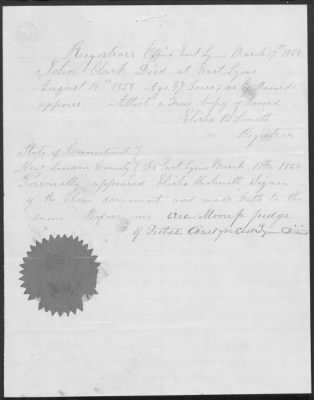 Registrars Office East Lyme March 17th
John Clark Died at East Lyme
August 19th Age 27 Years as
appears Attest a True Copy of Record
Elisha B. Smith
Registrar
State of Connecticut }
New London County } SS East Lyme March 18th
Personally appeared Elisha Smith Signer
of the above document and made Oath to the
same Before me judge
of Probate Court for East Lyme District